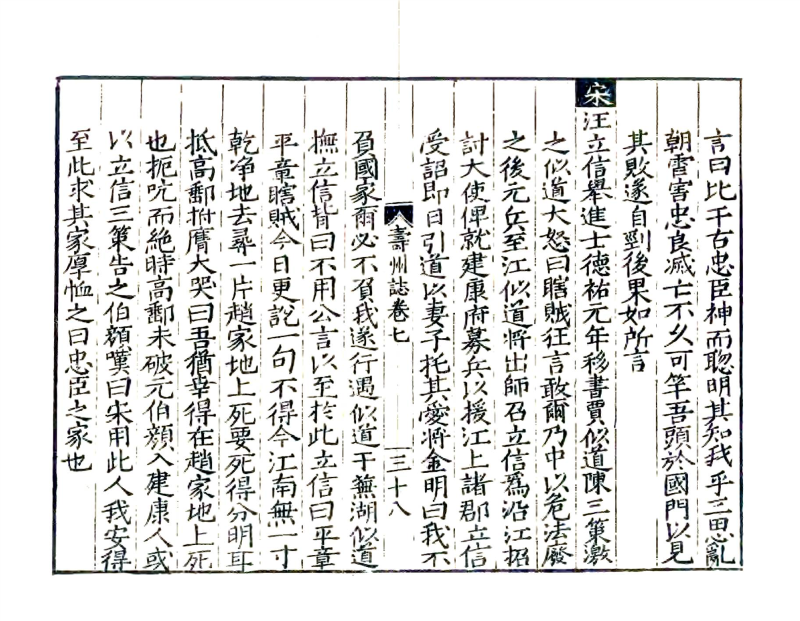 言曰比干古忠臣神而聰明其知我乎三思亂
朝霄害忠良滅亡不久可竿吾頭於國門以見
其敗遂自剄後果如所言
宋汪立信舉進士德祐元年移書賈似道陳三策激
之似道大怒曰瞎賊狂言敢爾乃中以危法廢
之後元兵至江似道將出師召立信爲沿江招
討大使俾就建康府募兵以援江上諸郡立信
受詔即日引道以妻子托其愛將金明曰我不
壽州誌卷七
三十八
負國家爾必不負我遂行遇似道于蕪湖似道
撫立信背曰不用公言以至於此立信曰平章
平章瞎賊今日更說一句不得今江南無一寸
乾净地去尋一片趙家地上死要死得分明耳
抵高郵拊膺大哭曰吾猶幸得在趙家地上死
也扼吭而絶時高郵未破元伯顔入建康人或
以立信三策告之伯顔嘆曰宋用此人我安得
至此求其家厚恤之曰忠臣之家也